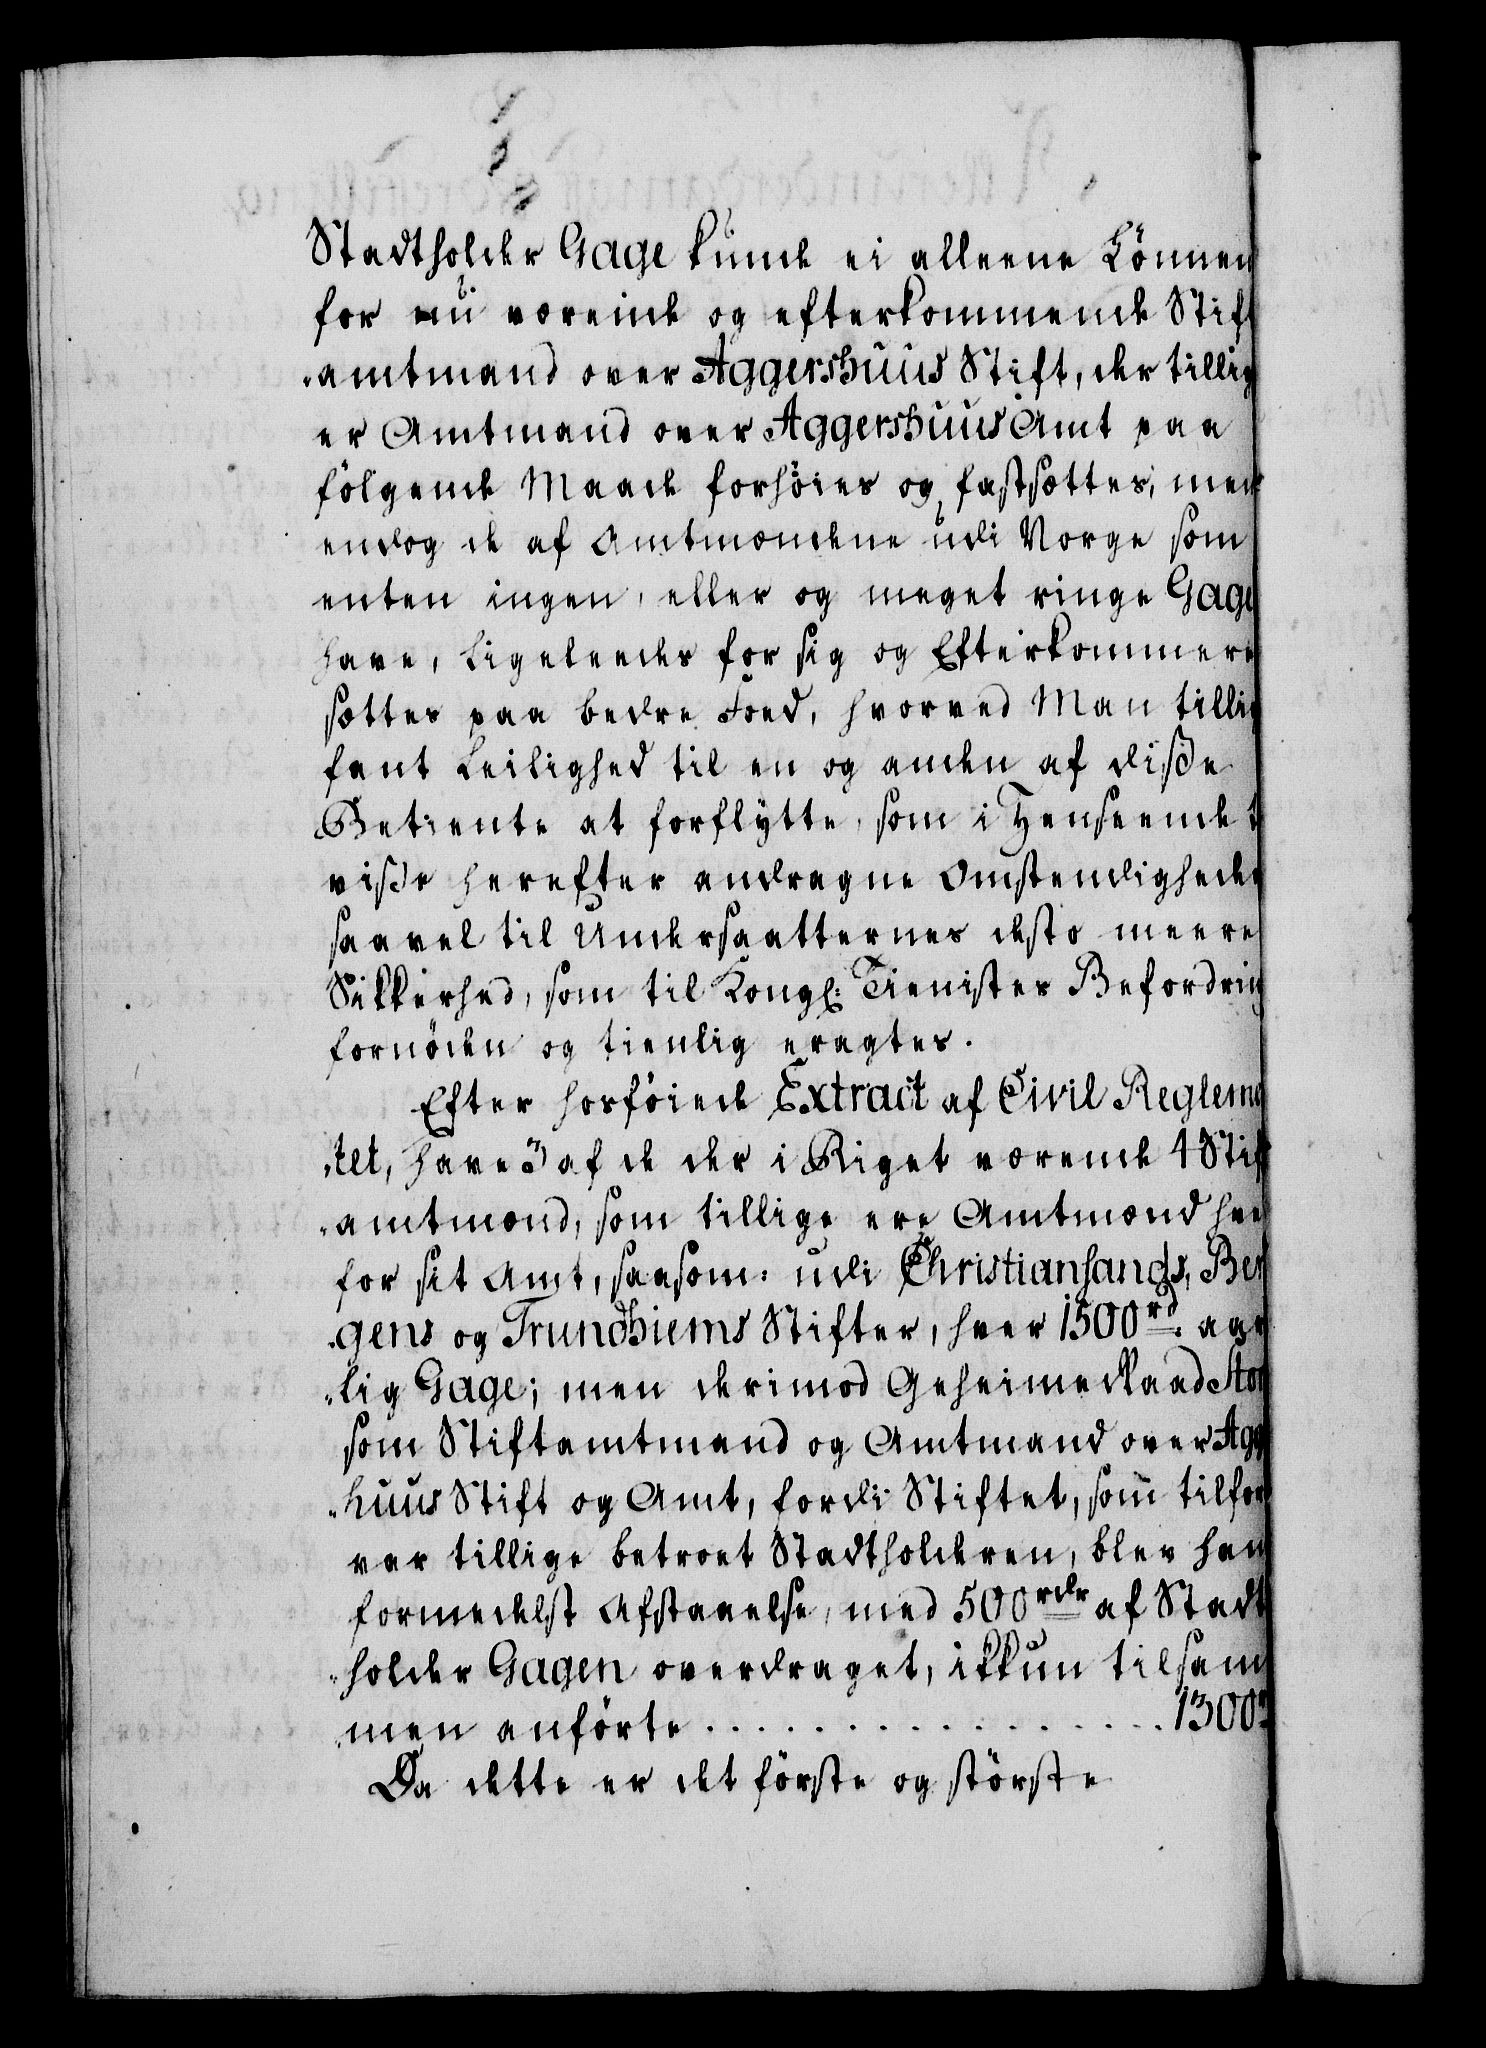 Stadtholder Gage kunde ei alleene Lönnen
for nu værende og efterkommende Stift
amtmand over Aggershuus Stift, der tillig
er Amtmand over Aggershuus Amt paa
fölgende Maade forhöies og fastsættes, men
endog de af Amtmændene udi Norge som
enten ingen, eller og meget ringe Gage
have, Ligeleedes for sig og Efterkommere
sættes paa bedre Foed, hvorved Man tillig
fant Leilighed til en og anden af diße
Betiente at forflytte, som i Henseende t
viße herefter andragne Omstendigheder
saavel til Undersaatternes desto meere
Sikkerhed, som til Kongl: Tienistes Befordring
fornöden og tienlig eragtes.
Efter hosföiede Extract af Civil Regleme
tet, have 3 af de der i Riget værende 4 Stift
amtmænd, som tillige ere Amtmænd hver
for sit Amt, saasom: udi Christiansands, Ber
gens og Trundhiems Stifter, hver 1500 rd. aar
lig Gage; men derimod Geheime Raad Stor
som Stiftamtmand og Amtmand over Agg
huus Stift og Amt, fordi Stiftet, som tilfor
var tillige betroet Stadtholderen, blev ham
formedelst Afstaaelse, med 500 rdr af Stadt
holder Gagen overdraget, ikkun tilsam
men anförte . . . . . . . . . . . . . . . . 1300 r
Da dette er det förste og störste